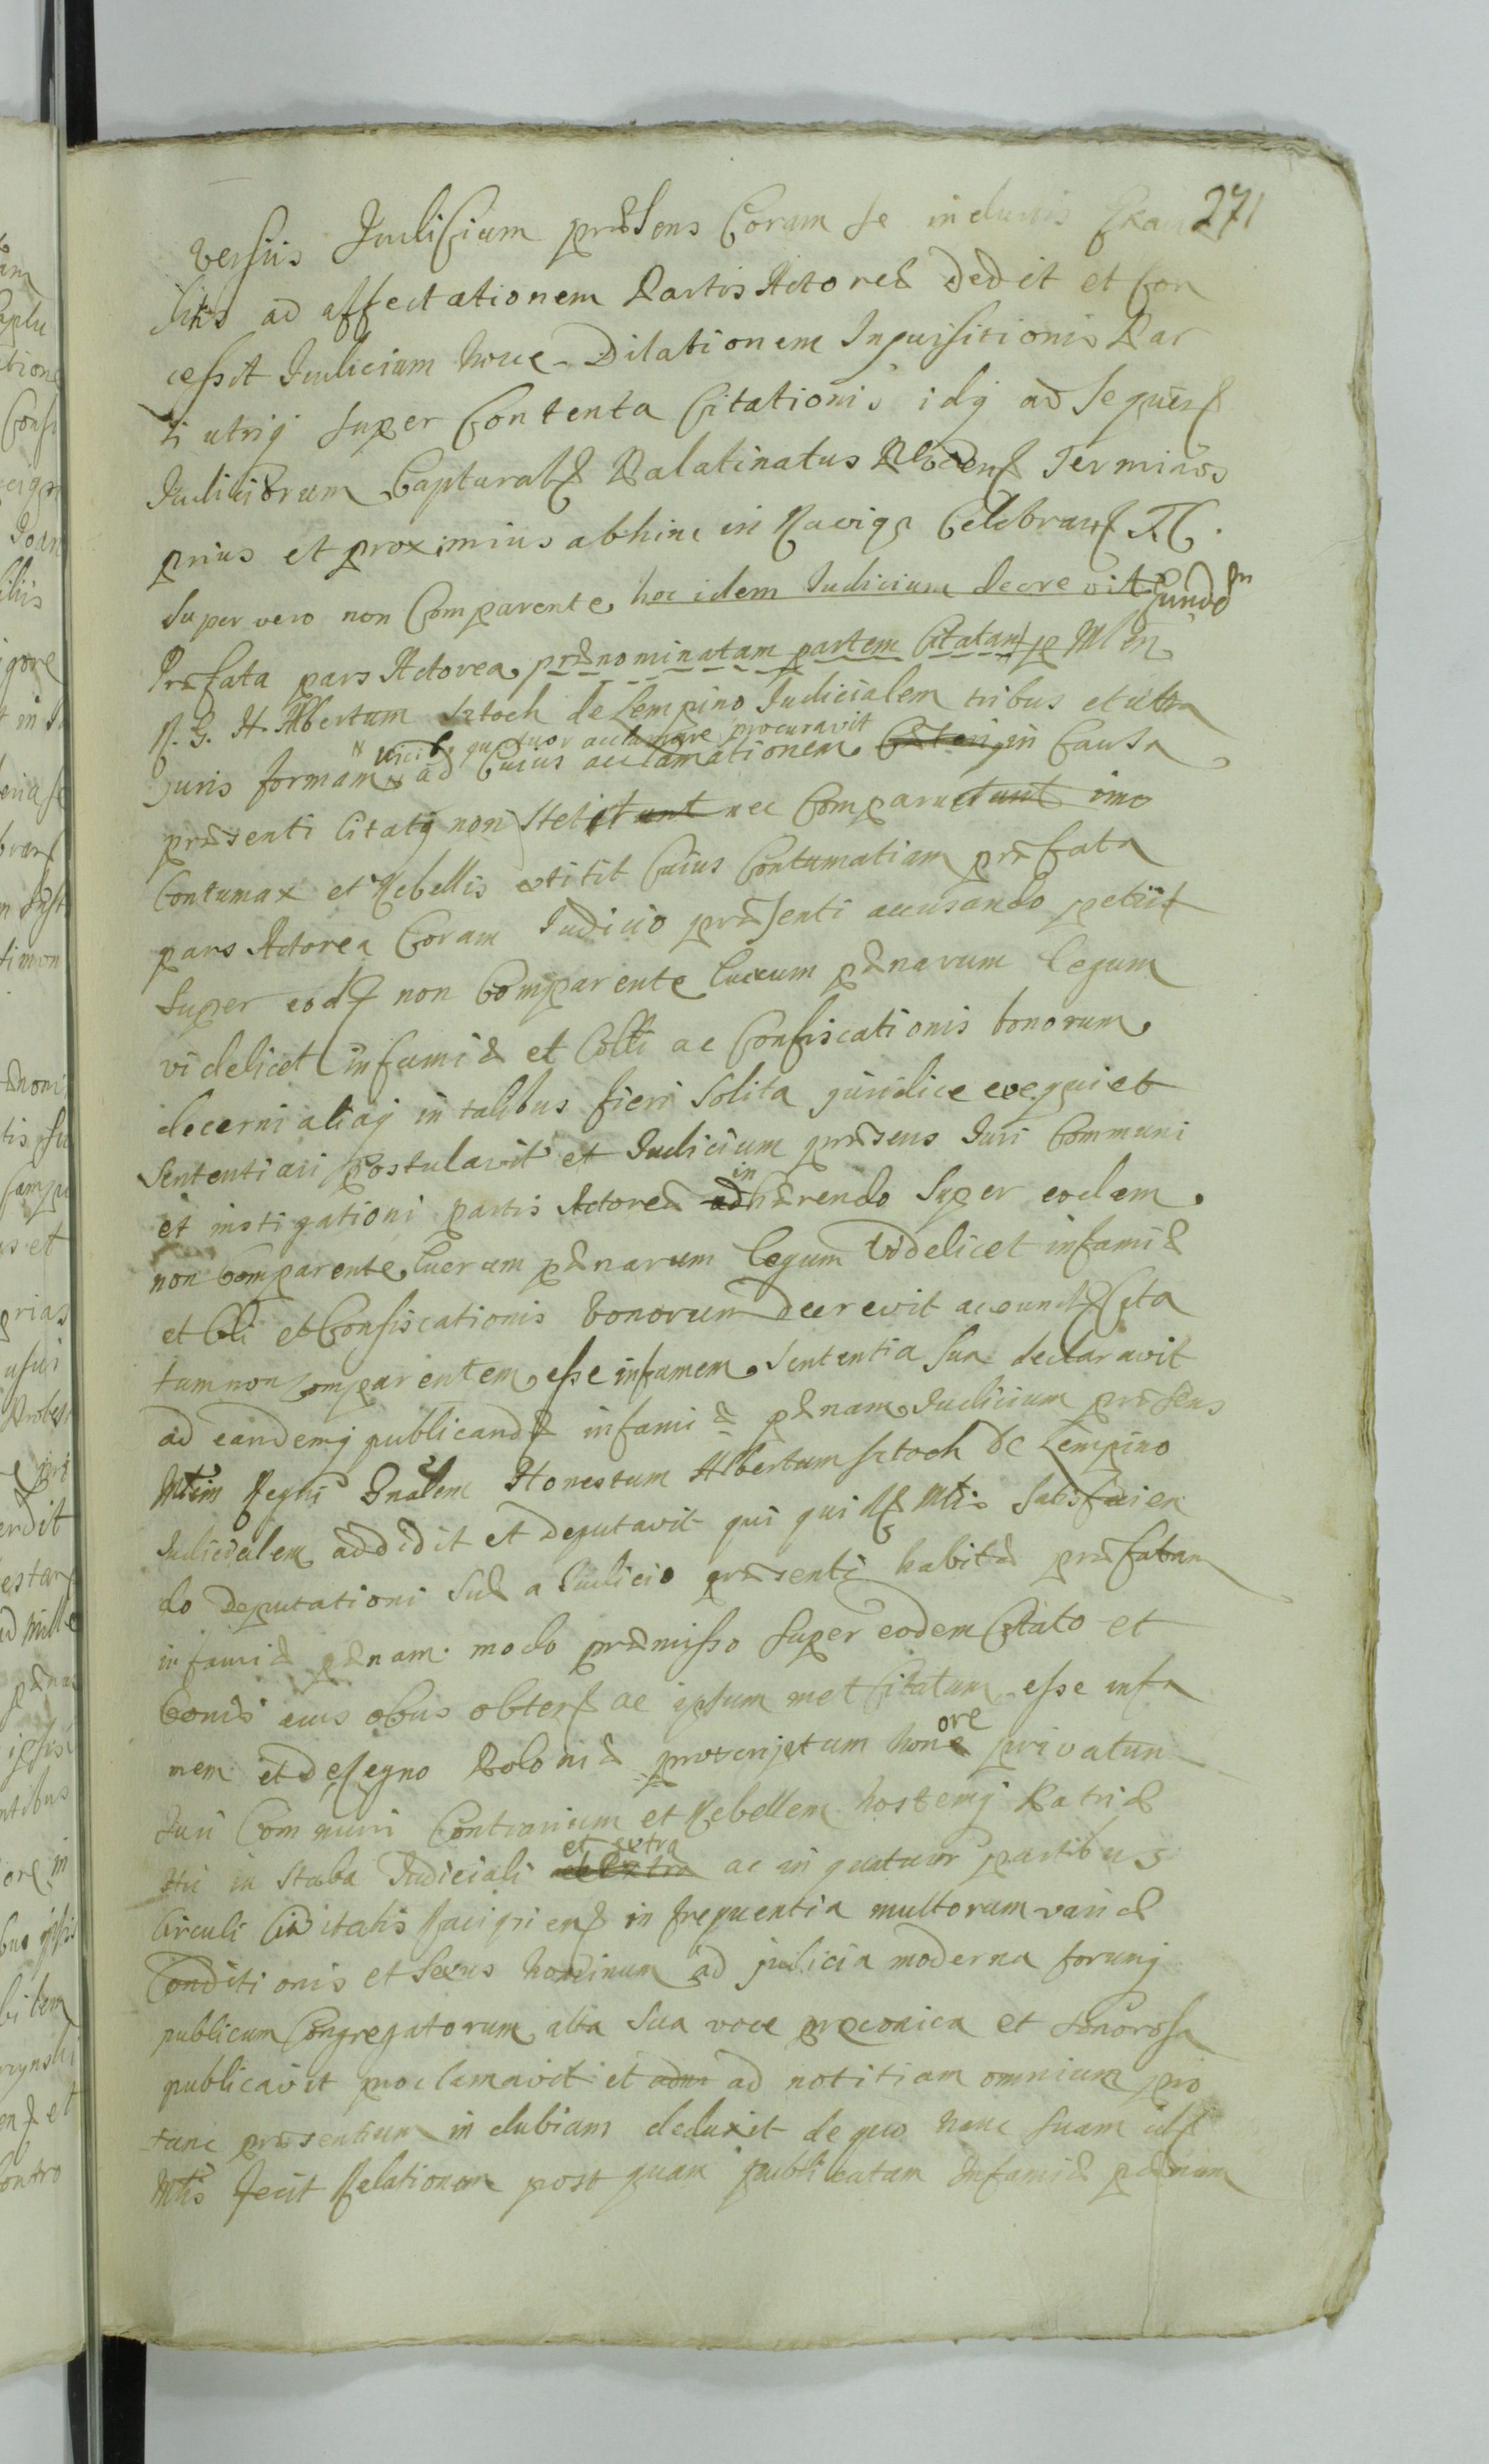 271
versiis Judicium præsens Coram se inductis
ad affectationem Partis Actoreæ Dedit et con
cessit Judicium hocce Dilationem Inquisitionis Par
ti utriq super Contenta Citationis idq ad sequen
Judiciorum Captural Palatinatus Plocen Terminos
prius et proximius abhinc in Raciąz Celebran
super vero non Comparente hoc idem Judicium decrevit
Præfata pars Actorea prænominatam partem Citatam p Min
R. G. H. Albertum Sztoch de Lempino Judicialem tribus et ultra
vicib quatuor acclamare procuravit
Juris formam ad Cuius acclamationem in Causa
præsenti Citatq non Stetit nec Comparuit imo
Contumax et Rebellis extitit Cuius Contumatiam præfata
pars Actorea Coram Judicio præsenti accusando petiit
super eod non Comparente lucrum pænarum legum
videlicet infamiæ et Colli ac Confiscationis bonorum
decerni aliaq in talibus fieri solita juridice exequi et
Sententiari Postulavit et Judicium præsens Juri Communi
in
et instigationi partis Actoreæ adhærendo super eodem
non Comparente lucrum pænarum legum Videlicet infamiæ
et Cli et Confiscationis bonorum decrevit ac eund Cita
tum non Comparentem esse infamem Sententia sua declaravit
ad eandemq publicand infamiæ pænam Judicium præsens
Mtrim Regni Gnalem Honestum Albertum Sztoch de Lempino
Judicialem addidit et Deputavit qui quid Mtris Satisfacien
do Deputationi Suæ a Judicio præsenti habitæ præfatam
infamiæ pænam modo præmisso super eodem Citato et
bonis eius obus obten ac ipsum met Citatum esse infa
ore
mem et de Regno Poloniæ proscriptum hone privatum
Juri Communi Contrarium et Rebellem hostemq Patriæ
et extra
Hic in Stuba Judiciali ac in quatuor partibus
Circuli Civitatis Raciązien in frequentia multorum variæ
Conditionis et Sexus hominum ad judicia moderna forumq
publicum Congregatorum alta Sua voce præconica et Sonorosa
publicavit proclamavit et ad notitiam omnium pro
tunc præsentium in dubiam deduxit de quo hanc suam id
Mtris fecit Relationem post quam publicatam Infamiæ pænam